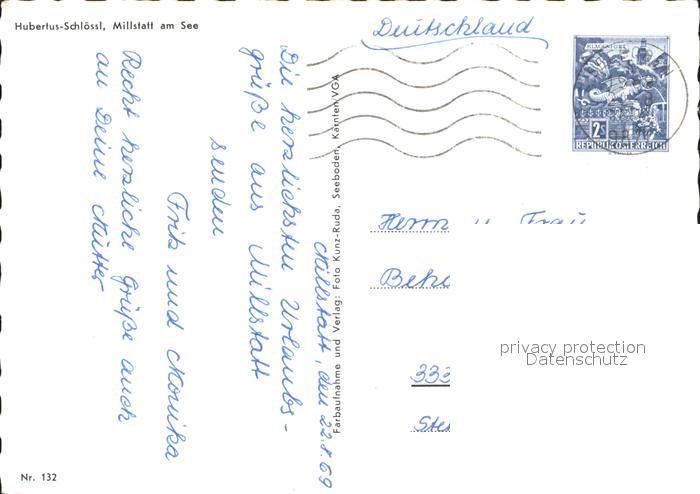 Hubertus-Schlössl, Millstatt am See
Deutschland
KLAGENFURT
2S
REPUBLIK ÖSTERREICH
Millstatt, den 22.8.69
Die herzlichsten Urlaubs-
grüße aus Millstatt
senden
Fritz und Monika
Recht herzliche Grüße auch
an Deine Mutter
Farbaufnahme und Verlag: Foto Kunz-Ruda, Seeboden, Kärnten/VGA
Herrn u. Frau
333
privacy protection
Datenschutz
Nr. 132